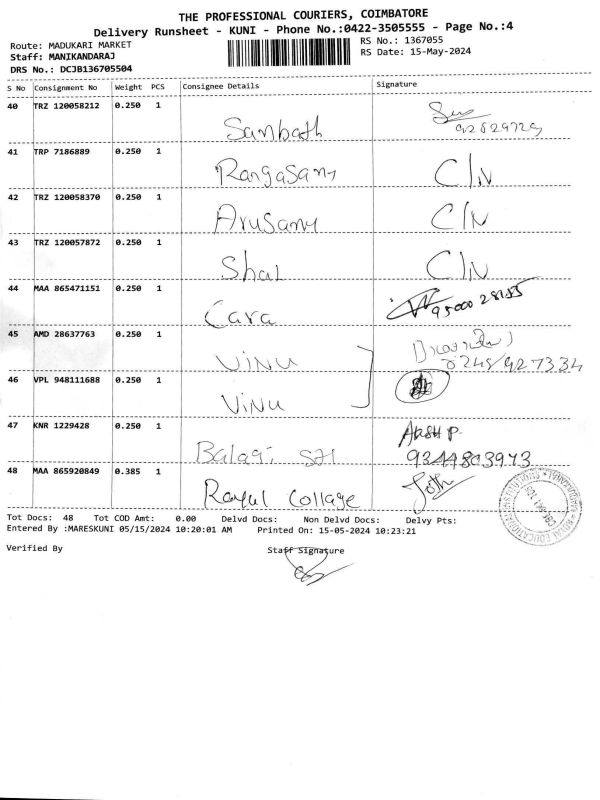 THE PROFESSIONAL COURIERS, COIMBATORE
Delivery Runsheet - KUNI - Phone No.:0422-3505555 - Page No.:4
Route: MADUKARI MARKET
RS No.: 1367055
Staff: MANIKANDARAJ
RS Date: 15-May-2024
DRS No.: DCJB136705504
S No Consignment No Weight PCS Consignee Details Signature
40 TRZ 120058212 0.250 1 Sanbath
41 TRP 7186889 0.250 1 Rangasamy C/N
42 TRZ 120058370 0.250 1 Arusamy C/N
43 TRZ 120057872 0.250 1 Shal C/N
44 MAA 865471151 0.250 1 Cara
45 AMD 28637763 0.250 1 Vinu
46 VPL 948111688 0.250 1 Vinu
47 KNR 1229428 0.250 1 Balagi Akash P
9344803973
48 MAA 865920849 0.385 1 Rayul Collage
Tot Docs: 48 Tot COD Amt: 0.00 Delvd Docs: Non Delvd Docs: Delvy Pts:
Entered By :MARESKUNI 05/15/2024 10:20:01 AM Printed On: 15-05-2024 10:23:21
Verified By Staff Signature